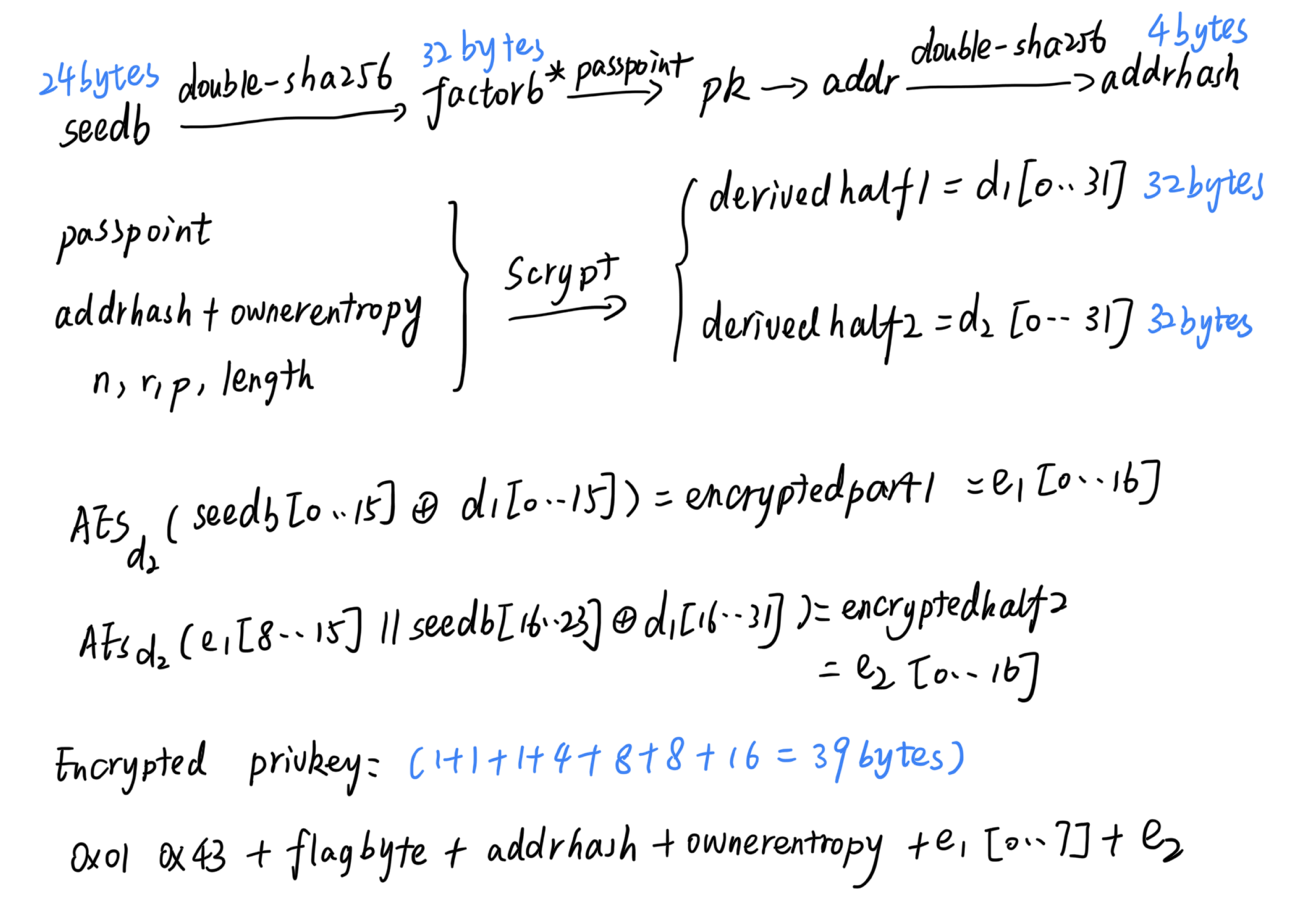 24bytes seedb double-sha256 → 32 bytes factorb * passpoint → pk → addr double-sha256 → 4 bytes addrhash
passpoint
addrhash + ownerentropy
n, r, p, length
Scrypt →
derivedhalf1 = d₁[0..31] 32bytes
derivedhalf2 = d₂ [0-- 31] 32bytes
AES_d₂ ( seedb[0..15] ⊕ d₁[0--15] ) = encryptedpart1 = e₁ [0--16]
AES_d₂ (e₁[8--15] || seedb[16..23] ⊕ d₁[16--31] ) = encryptedhalf2
= e₂ [0-- 16]
Encrypted privkey: (1+1+1+4+8+8+16 = 39bytes)
0x01 0x43 + flagbyte + addrhash + ownerentropy + e₁ [0..7] + e₂